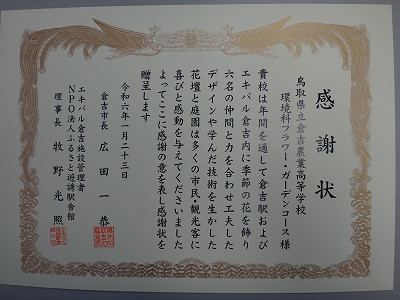 感謝状
鳥取県立倉吉農業高等学校
環境科フラワー・ガーデンコース様
貴校は年間を通して倉吉駅および
エキパル倉吉内に季節の花を飾り
六名の仲間と力を合わせ工夫した
デザインや学んだ技術を生かした
花壇と庭園は多くの市民・観光客に
喜びと感動を与えてくださいました
よってここに感謝の意を表し感謝状を
贈呈します
令和六年一月二十三日
倉吉市長 広田一恭
エキパル倉吉施設管理者
NPO法人ふるさと遊誘駅舎館
理事長 牧野光照